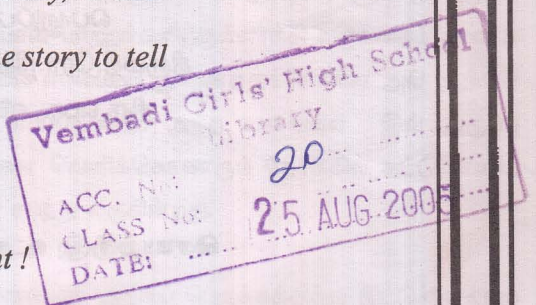 e story to tell
Vembadi Girls' High School
Library
ACC. No: 20
CLASS No:
DATE: 25 AUG 2005
t !